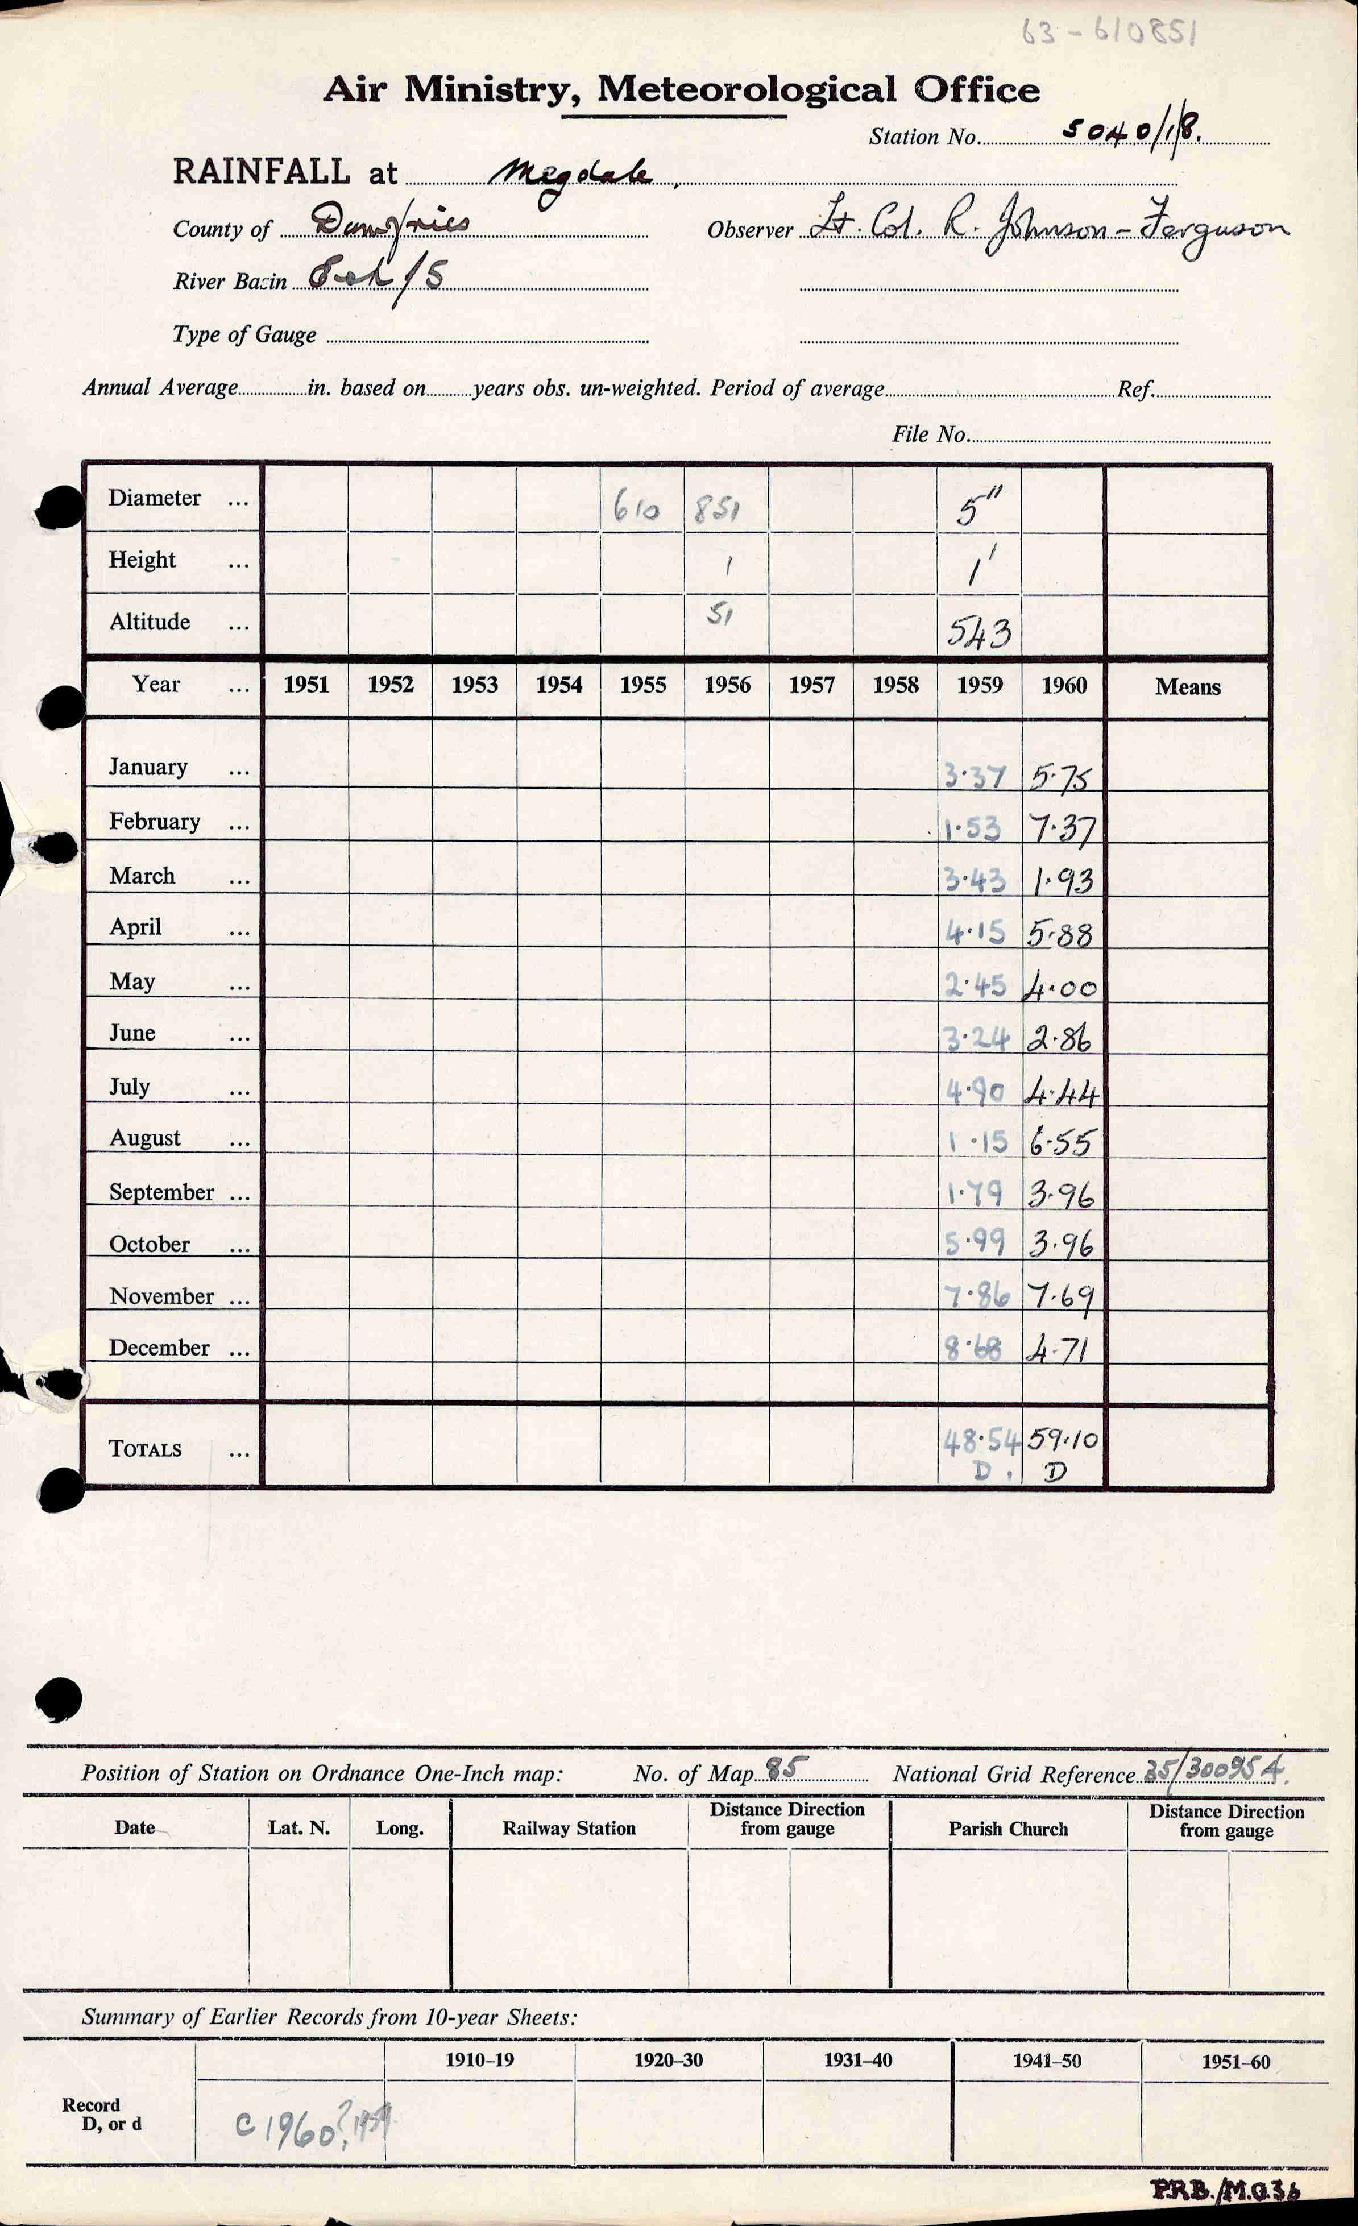 63 - 610851
Air Ministry, Meteorological Office
Station No. 5040/1/8.
RAINFALL at Megdale.
County of Dumfries Observer Lt. Col. R. Johnson-Ferguson
River Basin Esk/5
Type of Gauge
Annual Average in. based on years obs. un-weighted. Period of average Ref.
File No.
Diameter ... 610 851 5"
Height ... 1 1'
Altitude ... 51 543
Year ... 1951 1952 1953 1954 1955 1956 1957 1958 1959 1960 Means
January ... 3.37 5.75
February ... 1.53 7.37
March ... 3.43 1.93
April ... 4.15 5.88
May ... 2.45 4.00
June ... 3.24 2.86
July ... 4.90 4.44
August ... 1.15 6.55
September ... 1.79 3.96
October ... 5.99 3.96
November ... 7.86 7.69
December ... 8.68 4.71
TOTALS ... 48.54 59.10
D. D
Position of Station on Ordnance One-Inch map: No. of Map 85 National Grid Reference 35/300954.
Date Lat. N. Long. Railway Station Distance Direction from gauge Parish Church Distance Direction from gauge
Summary of Earlier Records from 10-year Sheets:
1910-19 1920-30 1931-40 1941-50 1951-60
Record
D, or d
C 1960? 1959
P.R.B./M.O.36